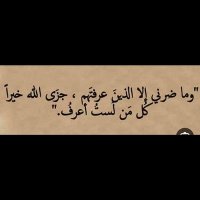 "وما ضرني إلا الذينَ عرفتَهم ، جزَى الله خيراً
كُل مَن لَستُ أعرفُ."